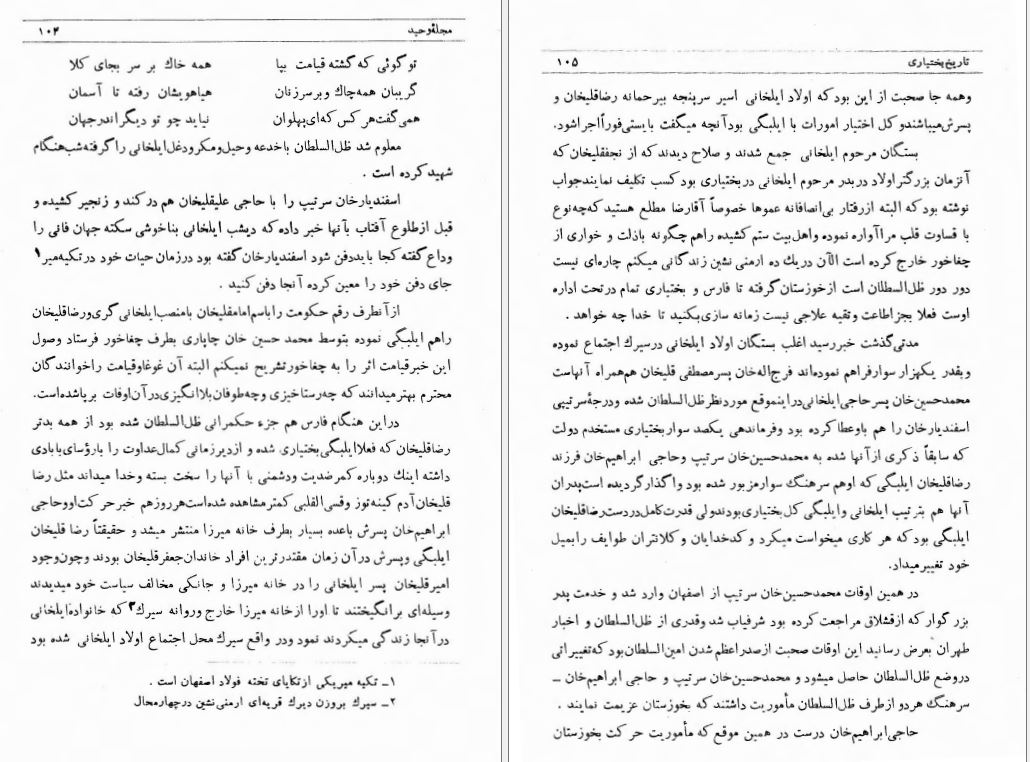 مجلهٔ وحید ۱۰۴
تو گوئی که گشته قیامت بپا همه خاك بر سر بجای کلا
گریبان همه چاك و بر سر زنان هیاهویشان رفته تا آسمان
همی گفت هر کس که ای پهلوان نیاید چو تو دیگر اندر جهان
معلوم شد ظل‌السلطان با خدعه و حیل و مکر و دغل ایلخانی را گرفته شب هنگام
شهید کرده است .
اسفندیارخان سرتیپ را با حاجی علیقلیخان هم در کند و زنجیر کشیده و
قبل از طلوع آفتاب بآنها خبر داده که دیشب ایلخانی بناخوشی سکته جهان فانی را
وداع گفته کجا باید دفن شود اسفندیارخان گفته بود در زمان حیات خود در تکیه میر۱
جای دفن خود را معین کرده آنجا دفن کنید .
از آنطرف رقم حکومت را باسم امامقلیخان با منصب ایلخانی گری و رضاقلیخان
را هم ایلبگی نموده بتوسط محمد حسین خان چاپاری بطرف چغاخور فرستاد وصول
این خبر قیامت اثر را به چغاخور تشریح نمیکنم البته آن غوغا و قیامت را خوانندگان
محترم بهتر میدانند که چه رستاخیزی و چه طوفان بلاانگیزی در آن اوقات برپا شده است.
در این هنگام فارس هم جزء حکمرانی ظل‌السلطان شده بود از همه بدتر
رضاقلیخان که فعلا ایلبگی بختیاری شده و از دیر زمانی کمال عداوت را با رؤسای بابادی
داشته اینك دوباره کمر ضدیت و دشمنی با آنها را سخت بسته و خدا میداند مثل رضا
قلیخان آدم کینه توز و قسی القلبی کمتر مشاهده شده است هر روز هم خبر حرکت او و حاجی
ابراهیم‌خان پسرش با عده بسیار بطرف خانه میرزا منتشر میشد و حقیقتاً رضا قلیخان
ایلبگی و پسرش در آن زمان مقتدرترین افراد خاندان جعفرقلیخان بودند و چون وجود
امیرقلیخان پسر ایلخانی را در خانه میرزا و جانکی مخالف سیاست خود میدیدند
وسیله‌ای برانگیختند تا او را از خانه میرزا خارج و روانه سیرك۲ که خانوادهٔ ایلخانی
در آنجا زندگی میکردند نمود و در واقع سیرك محل اجتماع اولاد ایلخانی شده بود
۱ــ تکیه میر یکی از تکایای تخته فولاد اصفهان است .
۲ــ سیرك بروزن دیرك قریه‌ای ارمنی نشین در چهارمحال
تاریخ بختیاری ۱۰۵
و همه جا صحبت از این بود که اولاد ایلخانی اسیر سرپنجه بیرحمانه رضاقلیخان و
پسرش میباشند و کل اختیار امورات با ایلبگی بود آنچه میگفت بایستی فوراً اجرا شود.
بستگان مرحوم ایلخانی جمع شدند و صلاح دیدند که از نجفقلیخان که
آنزمان بزرگتر اولاد در بدر مرحوم ایلخانی در بختیاری بود کسب تکلیف نمایند جواب
نوشته بود که البته از رفتار بی‌انصافانه عموها خصوصاً آقارضا مطلع هستید که چه نوع
با قساوت قلب مرا آواره نموده و اهل بیت ستم کشیده را هم چگونه با ذلت و خواری از
چغاخور خارج کرده است الآن در یك ده ارمنی نشین زندگانی میکنم چاره‌ای نیست
دور دور ظل‌السلطان است از خوزستان گرفته تا فارس و بختیاری تمام در تحت اداره
اوست فعلا بجز اطاعت و تقیه علاجی نیست زمانه سازی بکنید تا خدا چه خواهد .
مدتی گذشت خبر رسید اغلب بستگان اولاد ایلخانی در سیرك اجتماع نموده
و بقدر یکهزار سوار فراهم نموده‌اند فرج‌اله‌خان پسر مصطفی قلیخان هم همراه آنهاست
محمدحسین‌خان پسر حاجی ایلخانی در اینموقع مورد نظر ظل‌السلطان شده و درجهٔ سرتیپی
اسفندیارخان را هم باو عطا کرده بود و فرماندهی یکصد سوار بختیاری مستخدم دولت
که سابقاً ذکری از آنها شده به محمدحسین‌خان سرتیپ و حاجی ابراهیم‌خان فرزند
رضاقلیخان ایلبگی که او هم سرهنگ سوار مزبور شده بود واگذار گردیده است پدران
آنها هم بترتیب ایلخانی و ایلبگی کل بختیاری بودند ولی قدرت کامل در دست رضاقلیخان
ایلبگی بود که هر کاری میخواست میکرد و کدخدایان و کلانتران طوایف را بمیل
خود تغییر میداد.
در همین اوقات محمدحسین‌خان سرتیپ از اصفهان وارد شد و خدمت پدر
بزر گوار که از قشلاق مراجعت کرده بود شرفیاب شد و قدری از ظل‌السلطان و اخبار
طهران بعرض رسانید این اوقات صحبت از صدراعظم شدن امین‌السلطان بود که تغییراتی
در وضع ظل‌السلطان حاصل میشود و محمدحسین‌خان سرتیپ و حاجی ابراهیم‌خان ــ
سرهنگ هر دو از طرف ظل‌السلطان مأموریت داشتند که بخوزستان عزیمت نمایند .
حاجی‌ابراهیم‌خان درست در همین موقع که مأموریت حرکت بخوزستان